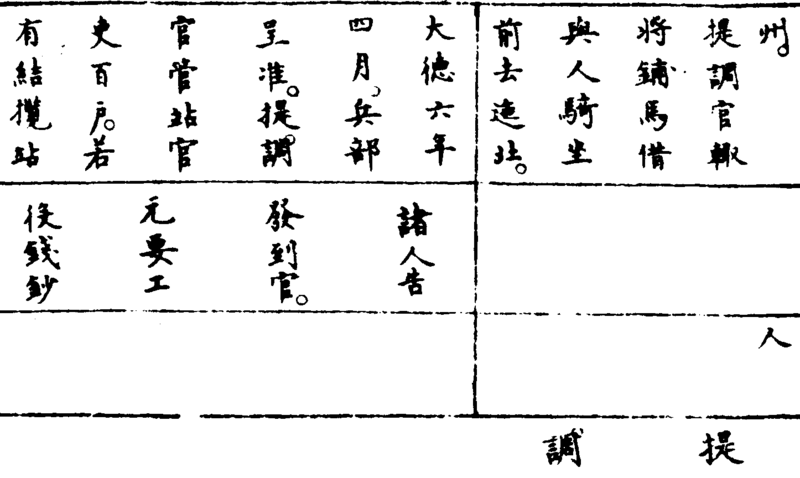 州。
提調官輙
將鋪馬借
與人騎坐
前去迤北。
人
提
調
大德六年
四月、兵部
呈准。提調
官管站官
吏百戶。若
有結攬站
諸人告
發到官。
元要工
役錢鈔